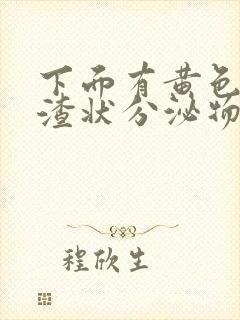 下面有黄色
渣状分泌物
程欣生